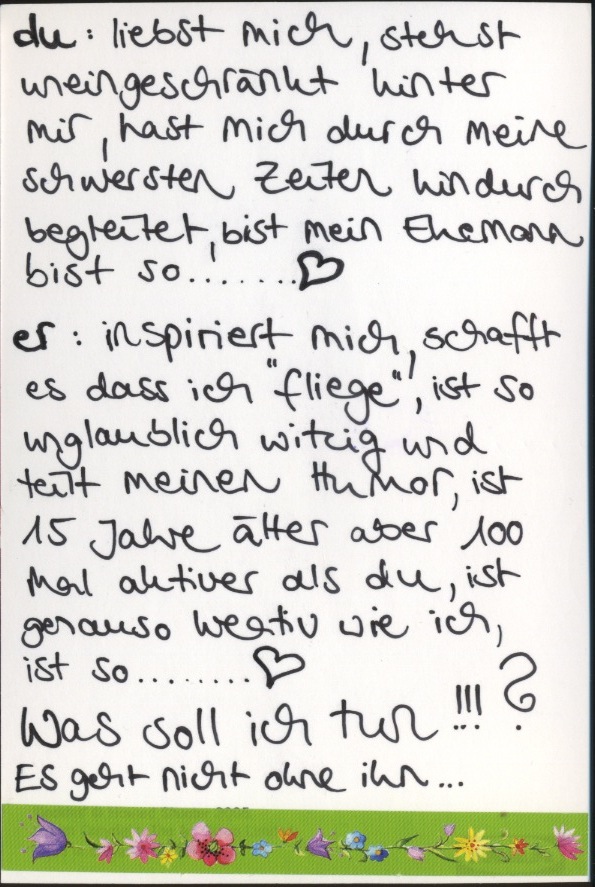 du: liebst mich, stehst
uneingeschränkt hinter
mir, hast mich durch meine
schwersten Zeiten hindurch
begleitet, bist mein Ehemann
bist so.......♡
er: inspiriert mich, schafft
es dass ich "fliege", ist so
unglaublich witzig und
teilt meinen Humor, ist
15 Jahre älter aber 100
Mal aktiver als du, ist
genauso kreativ wie ich,
ist so........♡
Was soll ich tun!!!?
Es geht nicht ohne ihn...